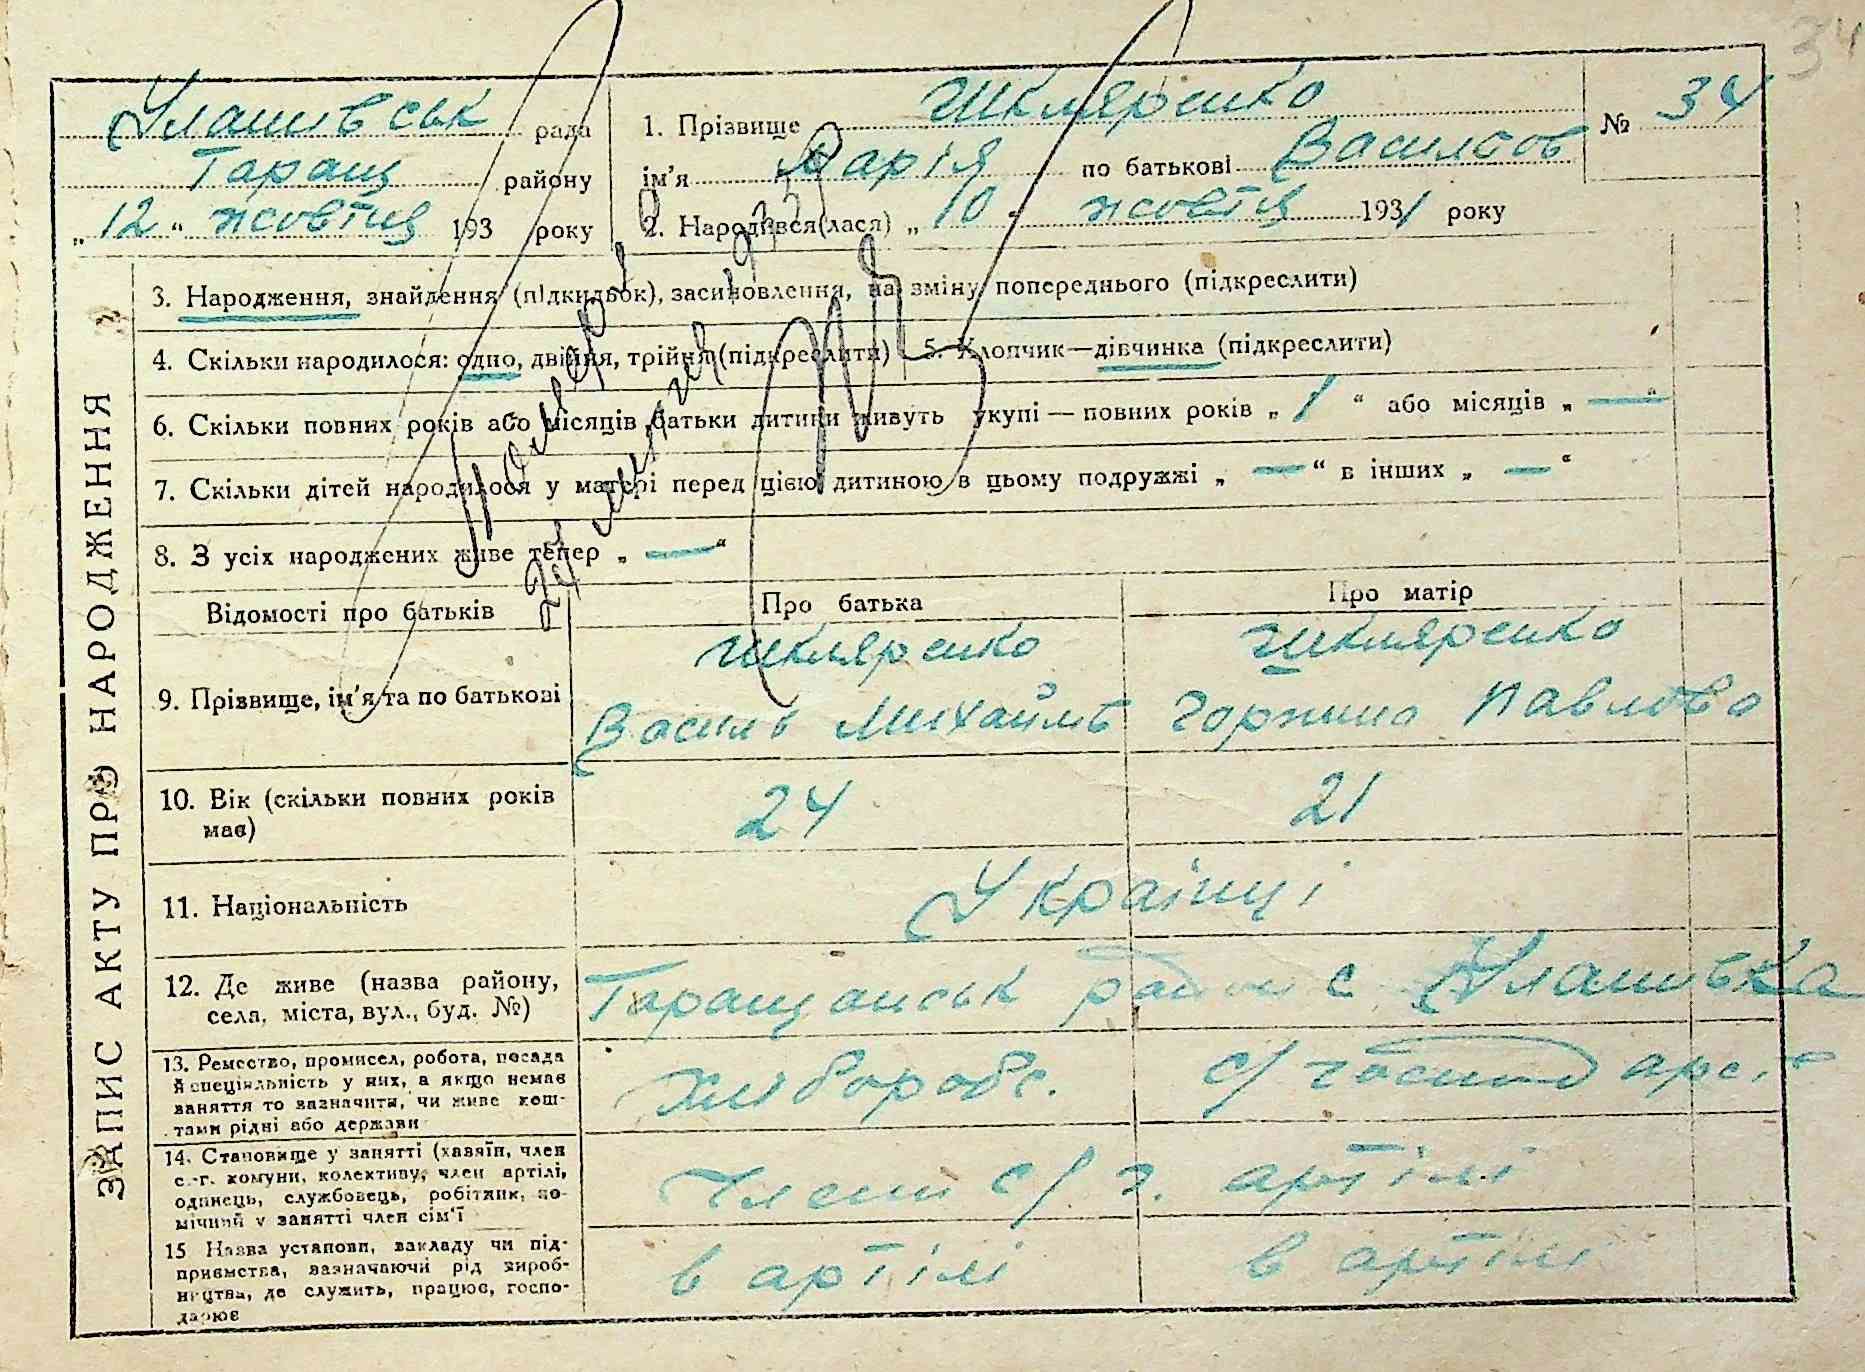 34
Улашівськ рада
Таращ району
„12“ жовтня 193 року
1. Прізвище Шкляренко
ім'я Марія по батькові Васильов
2. Народився(лася) „10 „ жовтня 1931 року
№ 34
ЗАПИС АКТУ ПРО НАРОДЖЕННЯ
3. Народження, знайдення (підкидьок), засиновлення, на зміну попереднього (підкреслити)
4. Скільки народилося: одно, двійня, трійня (підкреслити)
5. Хлопчик—дівчинка (підкреслити)
6. Скільки повних років або місяців батьки дитини живуть укупі — повних років „ 1 “ або місяців „ — “
7. Скільки дітей народилося у матері перед цією дитиною в цьому подружжі „ — “ в інших „ — “
8. З усіх народжених живе тепер „ — “
Відомості про батьків Про батька Про матір
9. Прізвище, ім'я та по батькові
Шкляренко Шкляренко
Василь Михайль Горпина Павлова
10. Вік (скільки повних років
має)
24 21
11. Національність Українці
12. Де живе (назва району,
села, міста, вул., буд. №)
Таращанськ район с Улашівка
13. Ремество, промисел, робота, посада
й спеціяльність у них, а якщо немає
заняття то зазначити, чи живе кош-
тами рідні або держави
хлібороб. с/господарс.
14. Становище у занятті (хазяїн, член
с.-г. комуни, колективу, член артілі,
одинець, службовець, робітник, по-
мічний у занятті член сім'ї
Члени с/г. артілі
15 Назва установи, закладу чи під-
приємства, зазначаючи рід вироб-
ництва, де служить, працює, госпо-
дарює
в артілі в артілі